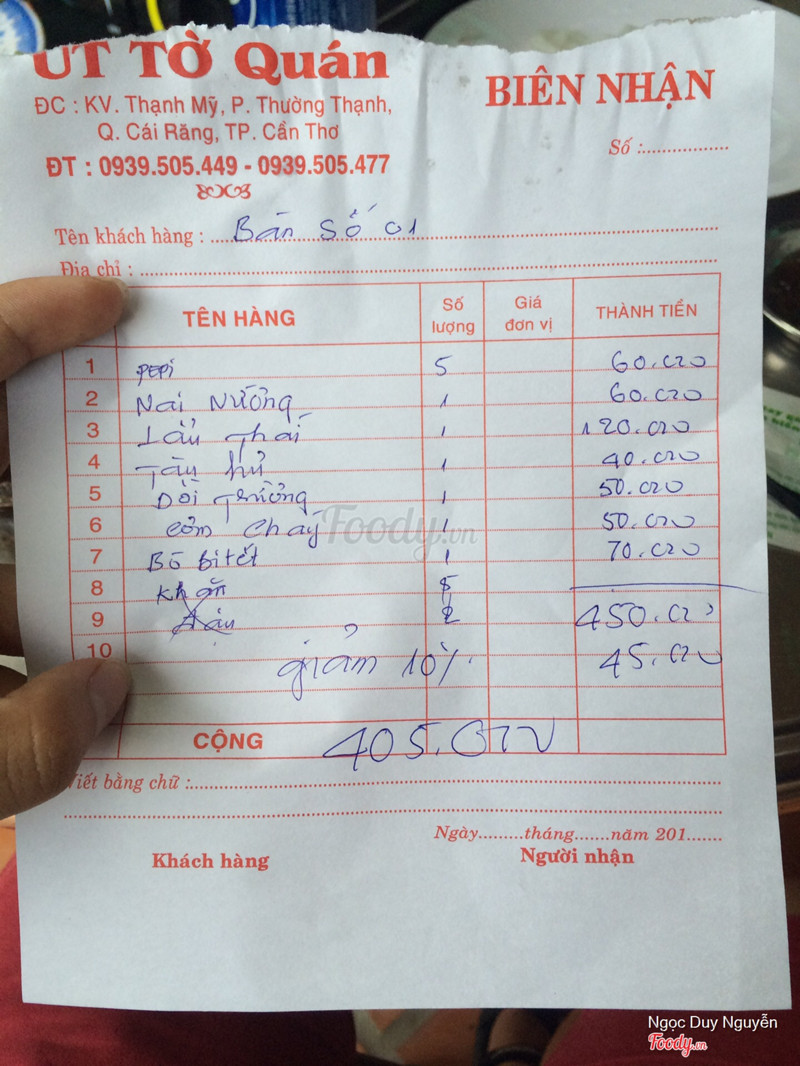 ÚT TỜ Quán
BIÊN NHẬN
ĐC : KV. Thạnh Mỹ, P. Thường Thạnh,
Q. Cái Răng, TP. Cần Thơ
Số :
ĐT : 0939.505.449 - 0939.505.477
Tên khách hàng : Bàn Số 01
Địa chỉ :
TÊN HÀNG Số lượng Giá đơn vị THÀNH TIỀN
1 PEPi 5 60.000
2 Nai Nướng 1 60.000
3 Lẩu Thái 1 120.000
4 Tàu hủ 1 40.000
5 Dồi trường 1 50.000
6 Cơm cháy 1 50.000
7 Bò bí tết 1 70.000
8 Khăn
9 450.000
10 giảm 10% 45.000
CỘNG 405.000
Viết bằng chữ :
Ngày.........tháng.......năm 201.......
Khách hàng Người nhận
Foody.vn
Ngọc Duy Nguyễn
Foody.vn